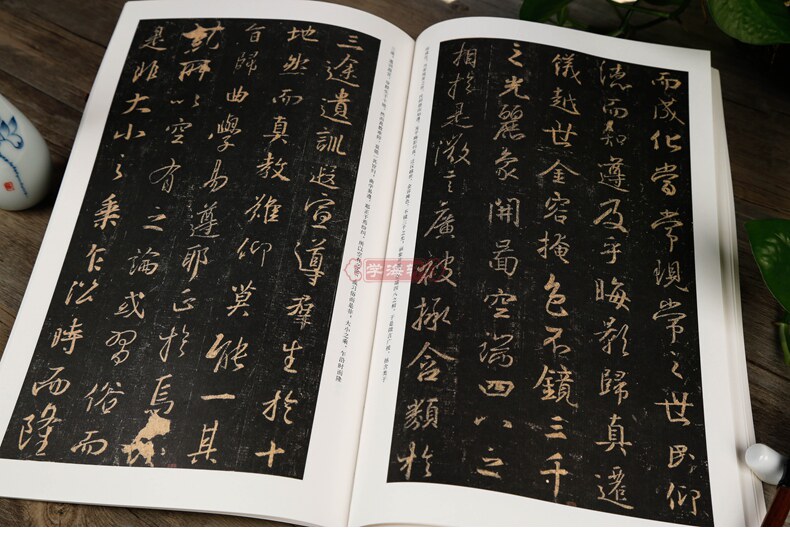 而成化當常現常之世民仰
德而知遵及乎晦影歸真遷
儀越世金容掩色不鏡三千
之光麗象開圖空端四八之
相於是微言廣被拯含類於
三途遺訓遐宣導群生於十
地然而真教難仰莫能一其
旨歸曲學易遵耶正於焉
紛糾所以空有之論或習俗而
是非大小之乘乍沿時而隆
学海